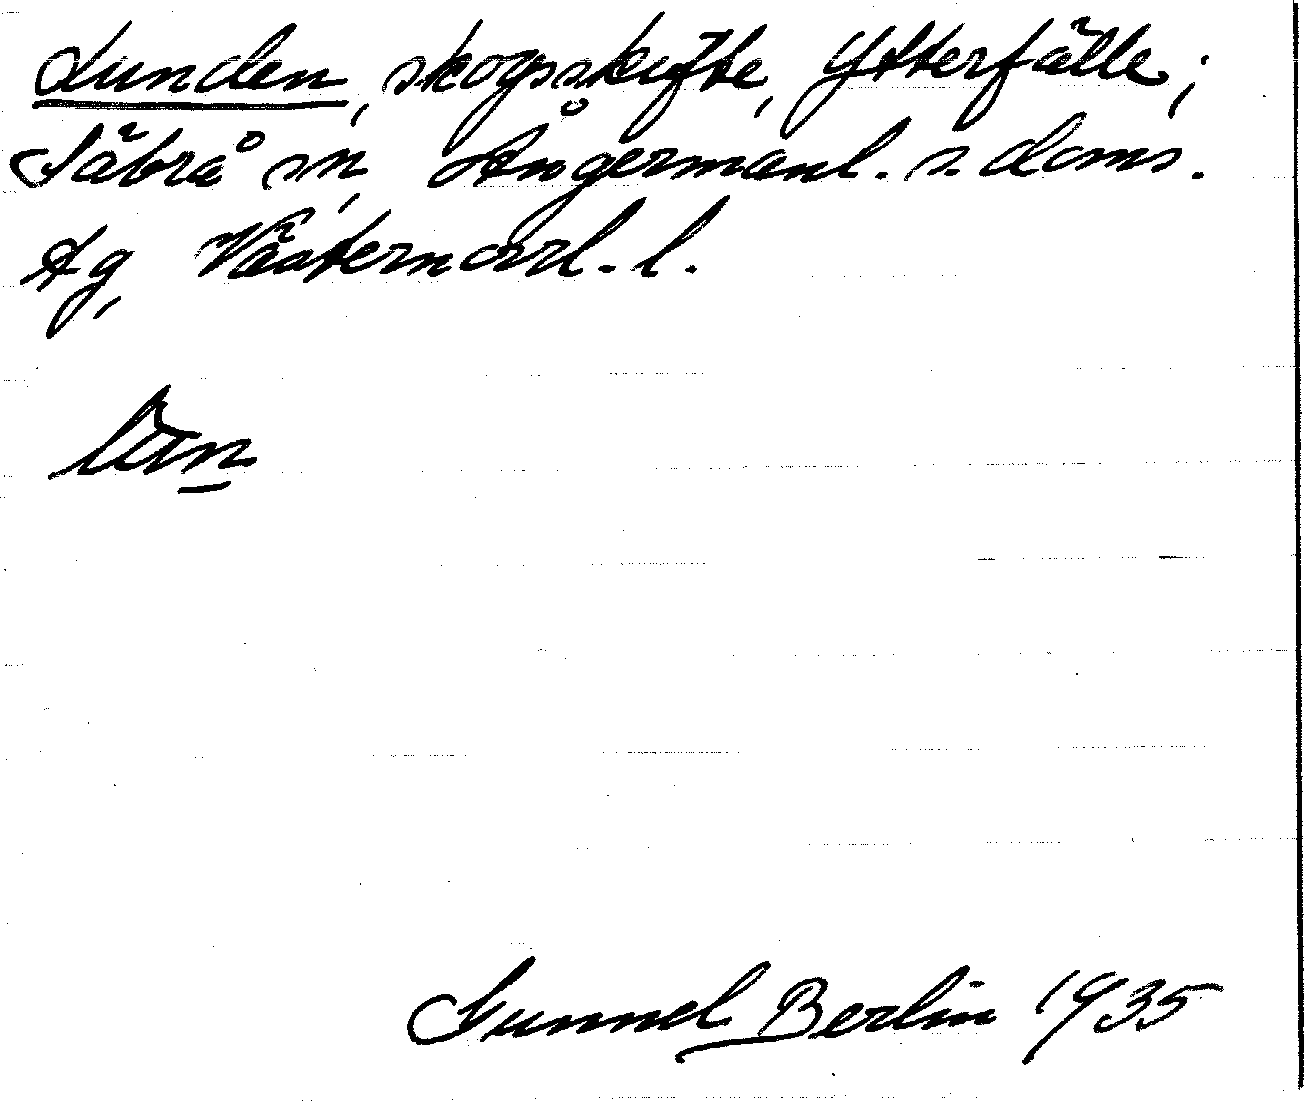 Lunden, skogsskifte, Ytterfälle;
Säbrå sn, Ångermanl. s. doms.
tg, Västernorrl. l.
Gunnel Berlin 1935